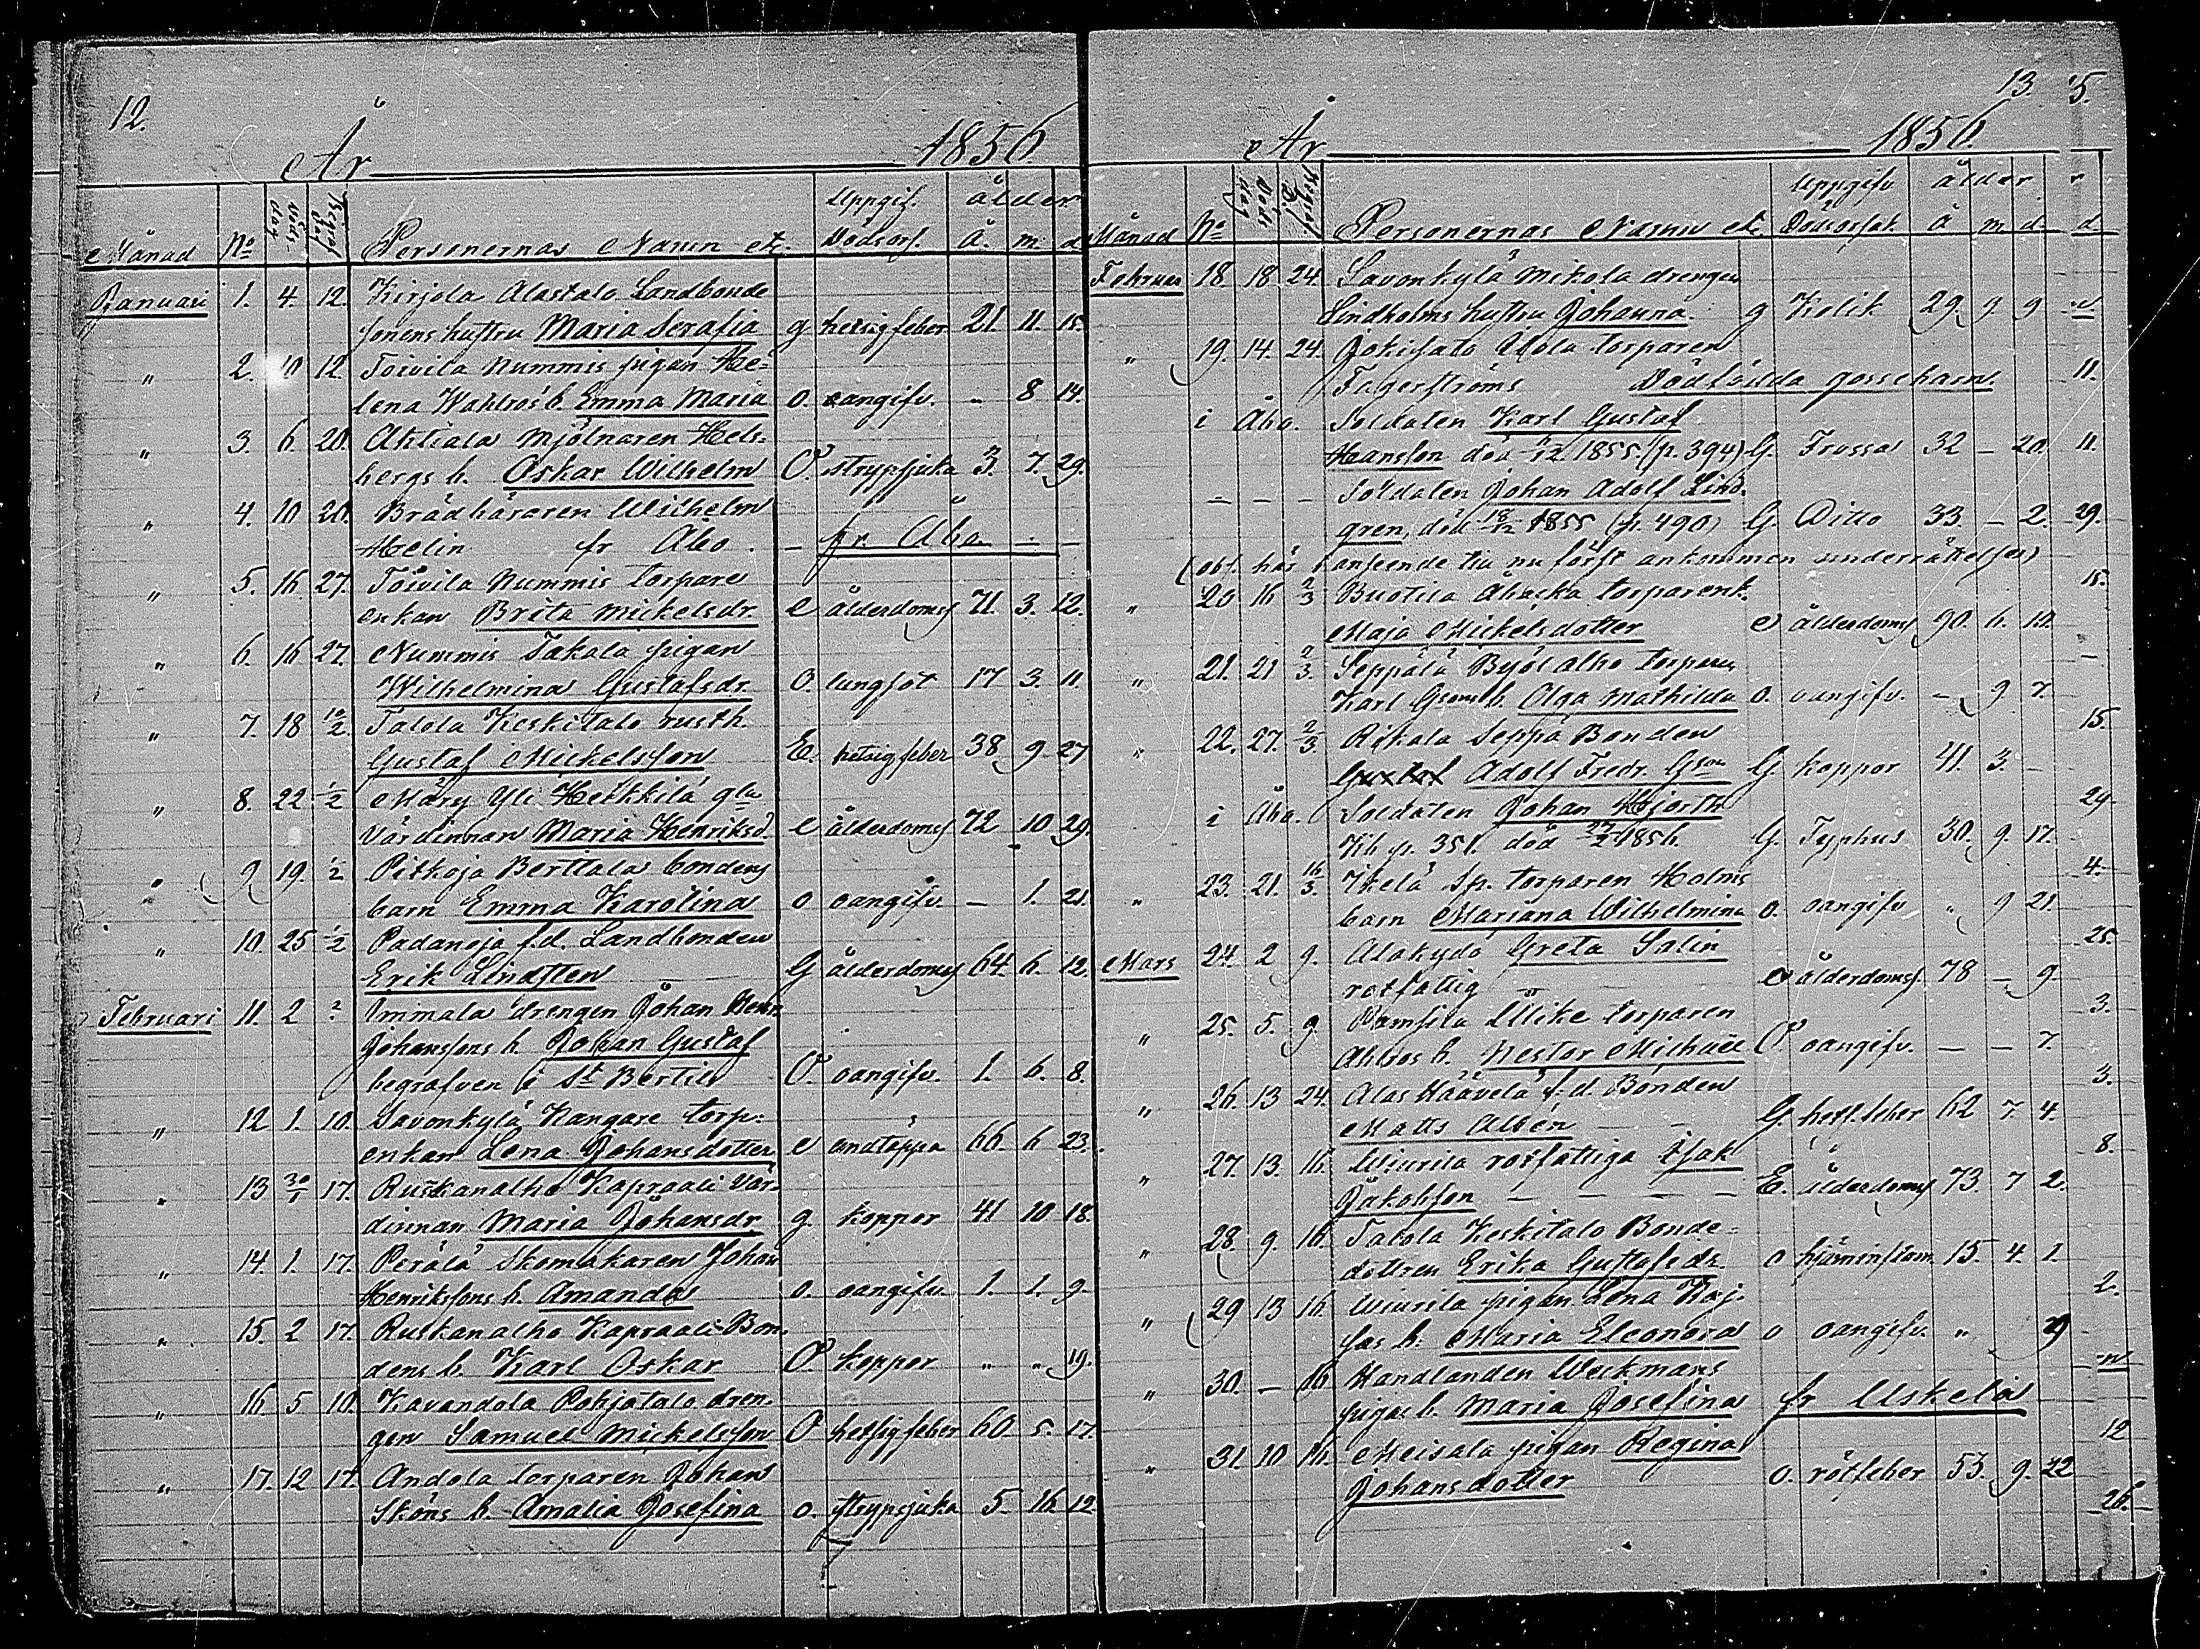 12.
År 1856
Månad No Döds dag Begraf dag Personernas Namn etc. Uppgif. Dödsors. ålder Å. m. d.
Januari 1. 4. 12. Kirjola Alastalo Landbonde
sonens hustru Maria Serafia g hetsigfeber 21. 11. 15.
" 2. 10 12. Toivila Nummis pigan He-
lena Wahlros b. Emma Maria o. oangifv. - 8 14.
" 3. 6. 20. Ahtiala Mjölnaren Hels-
bergs b. Oskar Wilhelm O. strypsjuka 3. 7. 29.
" 4. 10 20. Brädbäraren Wilhelm
Helin fr Åbo. - fr. Åbo - -
" 5. 16. 27. Toivila Nummis torpare
enkan Brita Mickelsdr. e ålderdomsf 71. 3. 12.
" 6. 16 27. Nummis Takala pigan
Wilhelmina Gustafsdr. o. lungsot 17 3. 11.
" 7. 18 10/2. Talola Keskitalo rusth.
Gustaf Mickelsson E. hetsigfeber 38 9 27
" 8. 22 1/2 Märy Yli Heikkilä gla
värdinnan Maria Henriksd. e ålderdomsf 72 10 29.
" 9 19. 1/2 Pitkoja Berttala bondens
barn Emma Karolina o oangifv. - 1. 21.
" 10. 25 1/2 Padanoja f.d. Landbonden
Erik Lindsten G ålderdomsf 64. 6. 12.
Februari 11. 2 ? Immala drengen Johan Henr.
Johanssons b. Johan Gustaf
begrafven i St Bertils O. oangifv. 1. 6. 8.
" 12 1. 10. Savonkylä Kangare torp.
enkan Lena Johansdotter e andtäppa 66. 6 23.
" 13 30/1 17. Ruskanalho Kapraali vär-
dinnan Maria Johansdr g. koppor 41 10 18.
" 14. 1. 17. Perälä Skomakaren Johan
Henrikssons b. Amanda o. oangifv. 1. 1. 9.
" 15. 2 17. Ruskanalho Kapraali Bon-
dens b. Karl Oskar O koppor " " 19.
" 16. 5 10. Kavandola Pohjatalo dren-
gen Samuel Mickelsson O hetsigfeber 60. 5. 17.
" 17. 12 17. Andola torparen Johans
Sköns b. Amalia Josefina o. strypsjuka 5. 16 12.
13 5.
År 1856.
Månad No Döds dag Begraf D. Personernas Namn etc. Uppgifv Dödsorsak ålder å m d. d
Februari 18. 18. 24. Savonkylä Mikola drengen
Lindholms hustru Johanna g Kolik 29. 9. 9
" 19. 14. 24. Jokisato Uola torparen
Fagerströms Dödfödda gossebarn. 11.
i Åbo. Soldaten Karl Gustaf
Hansson död /12 1855. (p. 394) G. Frossa 32 - 20. 11.
- - - Soldaten Johan Adolf Lind-
gren, död 8/12 1855 (p. 490) G. Ditto 33. - 2. 29.
(obs. här i anseende till nu först ankommen underrättelse)
" 20 16 2/3 Buotila Ahacka torparenk. 15.
Maja Mickelsdotter e ålderdomsf 90. 6. 10.
" 21. 21 2/3. Seppälä Byölalho torparen -
Karl Gsons b. Olga Mathilda o. oangifv. - 9 7.
" 22. 27. 2/3 Rikala Seppä Bonden 15.
Gustaf Adolf Fredr. Gson G. koppor 41. 3. -
i Åbo. Soldaten Johan Hjorth 29.
Kb p. 351. död 27/2 1856. G. Typhus 30. 9. 17.
" 23. 21. 16/3. Ikelä Sp. torparen Holms 4.
barn Mariana Wilhelmina o. oangifv " 9 21.
Mars 24. 2 9. Alakydö Greta Salin 25.
rotfattig e ålderdomsf. 78 - 9.
" 25. 5. 9. Romsila Ullike torparen 3.
Ahlros b. Nestor Michael O. oangifv. - - 7.
" 26. 13 24. Alas Häävelä f.d. Bonden 3.
Matts Albén G. hets.feber 62 7. 4.
" 27. 13. 16. Wiurila rotfattiga Isak 8.
Jakobsson - - - - E. ålderdomsf 73. 7 2.
" 28. 9. 16. Talola Keskitalo Bonde-
dottren Erika Gustafsdr. o hjerninflam. 15. 4. 1.
" 29 13 16. Wiurila pigan Lena Kaj- 2.
sas b. Maria Eleonora o oangifv. " 9
" 30. - 16 Handlanden Weckmans
pigas b. Maria Josefina fr Uskela
" 31. 10 16. Meisala pigan Regina 12
Johansdotter o. rötfeber 53. 9. 22
26.